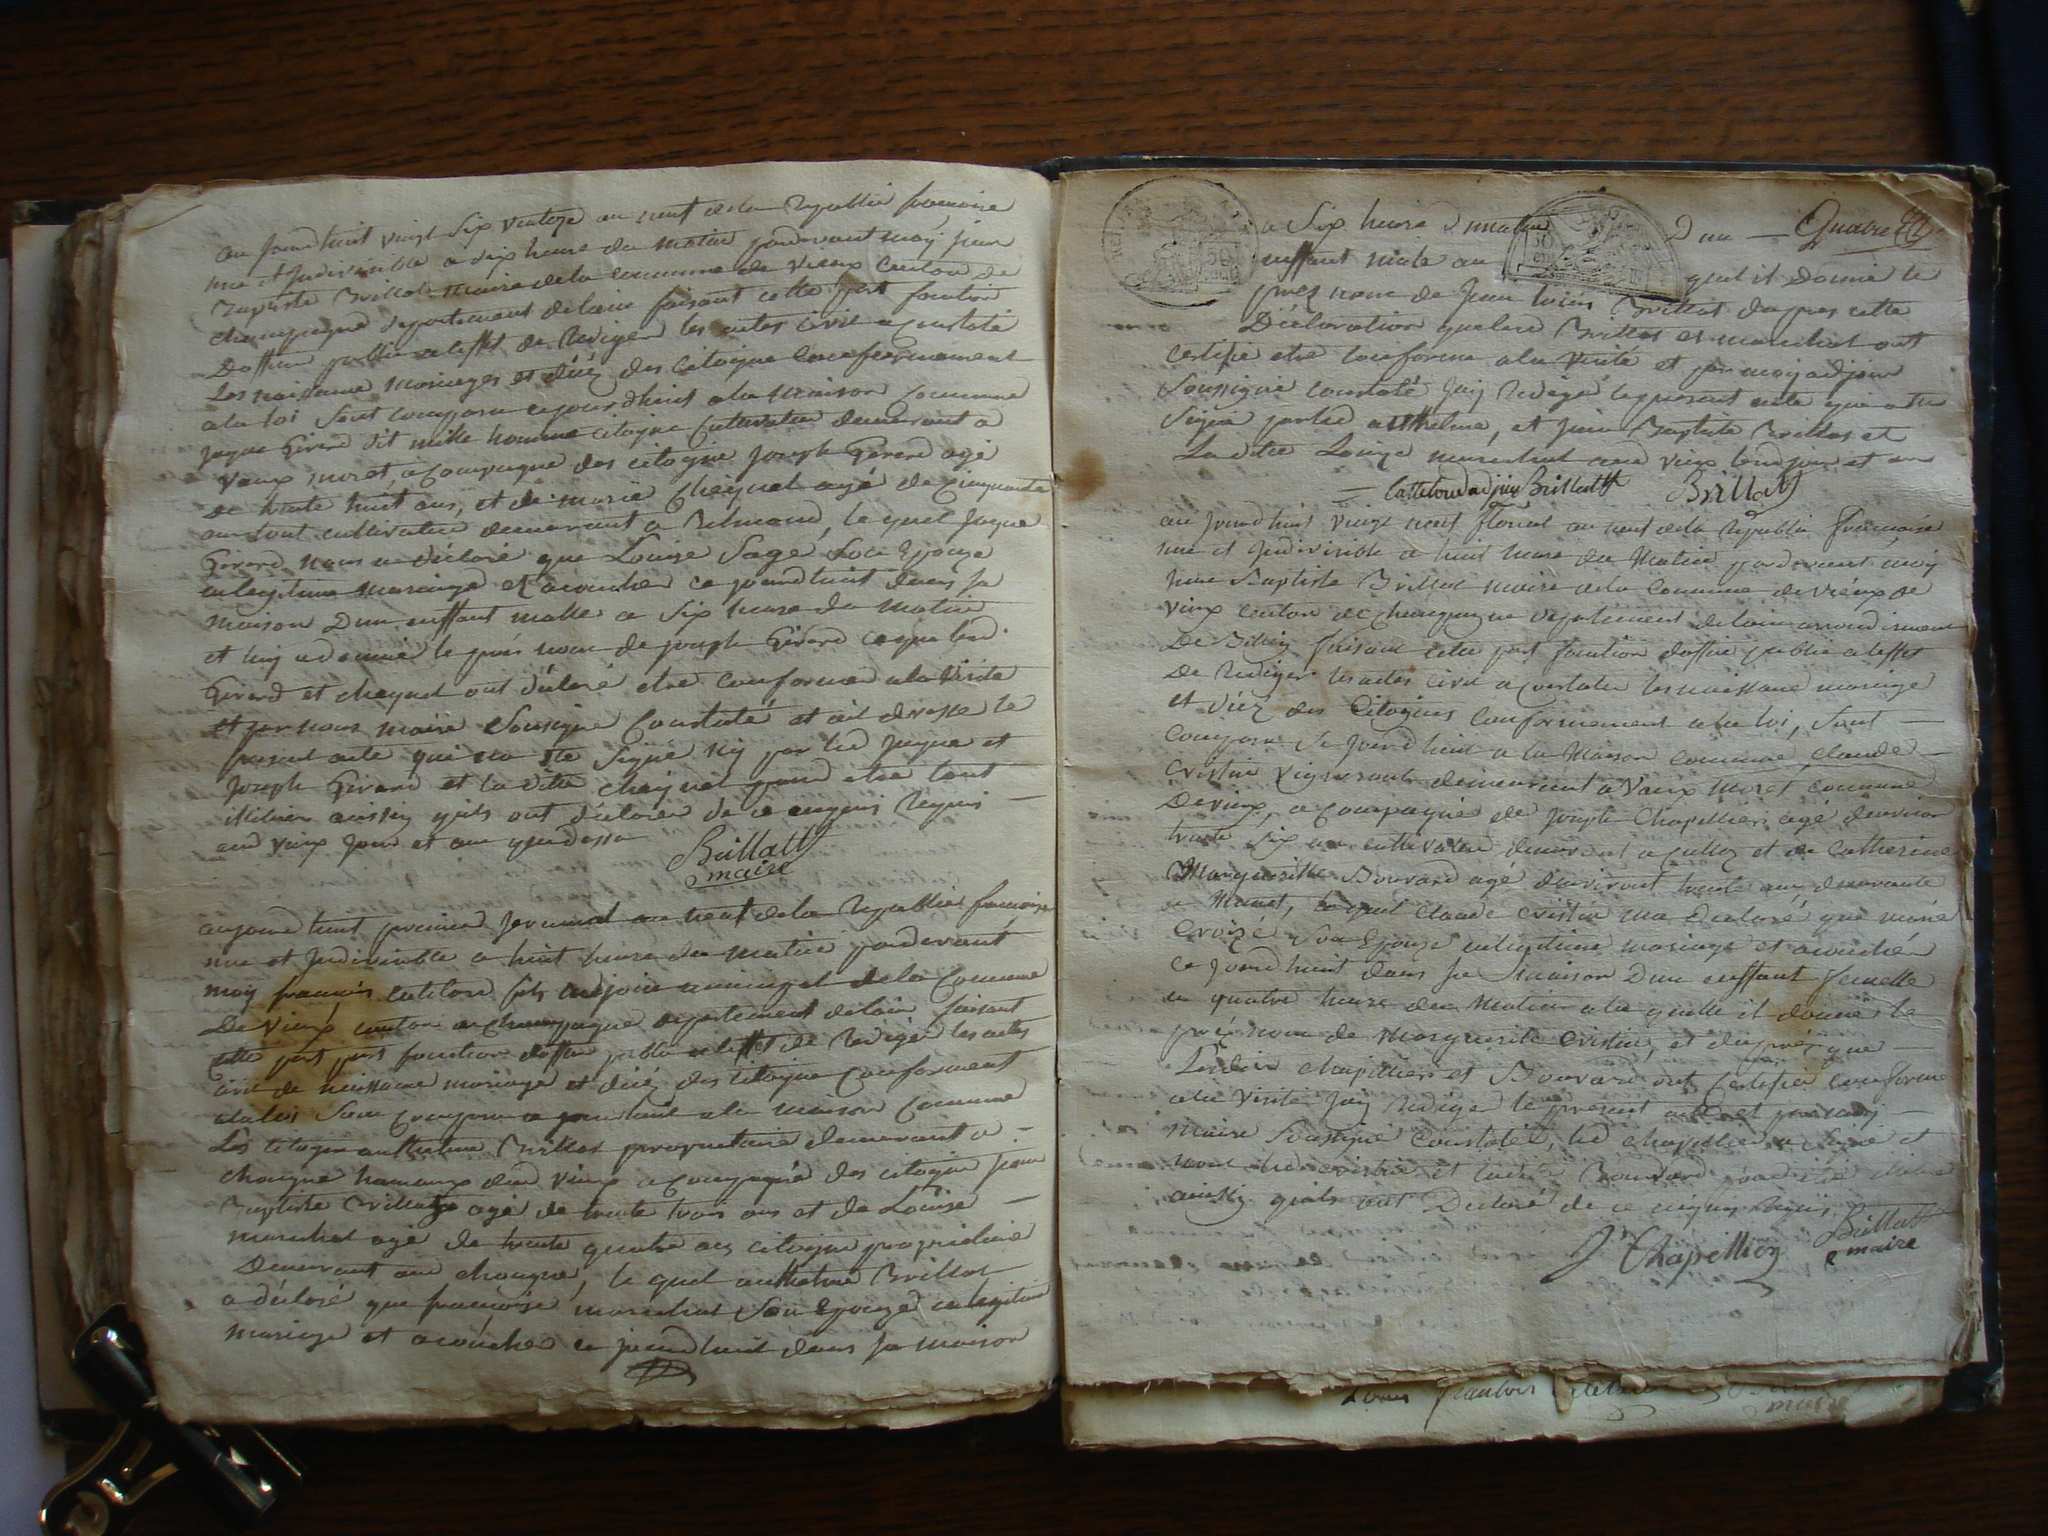 au jourdhuit vingt six ventoze an neuf de la republie francoise
une et Jndivisible a dix heure du matin pardevant moÿ jean
Baptiste Brillat maire de la commune de vieux Canton de
champagne departement delain faisant cette part fonction
Doffier public a leffet de Rediger les actes civil a Constaté
Les naissance mariages et décéz des Citoyins Conformement
a la loi sont comparu cejourdhuit a la maison commune
jaque Girard dit mille homme citoyin Cultivateur demeurant a
Vaux moret, a Compagne des citoyin joseph Gerard agé
de trente huit ans, et de marie Cheynel agé de Cinquante
ans tout cultivateur demeurant a Belmond, le quel Jaque
Girard nous a déclaré que Louise Sage Son Epouze
en legitime mariage et acouchée ce jourdhuit dans sa
maison Dun enffant malle a Six heure du matin
et luy a donné le prés nom de joseph Girard ce que led.
Girard et cheynel ont déclaré etre conforme a la vérite
et par nous maire Sousigne Constaté et ait dresse le
present acte qui na ete Signé ny par led Jaque et
Joseph Girard et la ditte cheynel pour etre tout
illiteré ainsiy quils ont déclarer de ce enquis Requis —
aud vieux jour et an que dessa
Brillatt
maire
aujourdhuit premier Jerminal an neuf de la Republie francoise
une et Jndivisible a huit heure du matin pardevant
moy francois adjoin municipal de la Commune
De vieux canton de champagne departement delain faisant
cette part fonction doffier public a leffet de Rediger les actes
civil de naissance mariage et décéz des citoyin Conforment
a la loi Sont Comparu a jourdhuit a la maison Commune
Les Citoyin anthelme Brillat propriétaire demeurant a —
chongne hamaux dud vieux a Compagné des citoyin jean
Baptiste Brillat agé de trente trois ans et de Louise —
marchat agé de trente quatre ans citoyin propriétaire
Demeurant aud chongne, le quel anthelme Brillat
a déclaré que francoise marchat Son Epouze en legitime
mariage et acouchée ce jourdhuit dans sa maison
a Six heure d matin Dun — Quatre
enffant male au quel it Donné le
prez nom de Jean louis Brillat dapres cette
Déclaration quelesd Brillat et marchat ont
certifié etre Conforme a la vérité et par moy adjoin
Soussigné constaté Jay Redigé le present acte qui a été
Signé par led anthelme, et jean Baptiste Brillat et
La dite Louize marchat aud vieux lesd jour et an
— adjoin Brillatt Brillatt
au jourdhuit vingt neuf floreal an neuf de la Republie francoise
une et Jndivisible a huit heure du Matin pardevant moy
Jean Baptiste Brillat maire de la Commune de Vieux de
vieux canton de champagne departement delain arrondissement
De Belley faisant cette part fonction doffier public a leffet
De Rediger les actes civil a Constater les naissance mariage
et décéz des Citoyins Conformement a la loi, Sont —
Comparu ce Jourdhuit a la Maison Commune Claude —
Cristin vigneront demeurant a Vaux moret commune
De vieux, a Compagné de Joseph Chapellier agé denviron
trente Six an cultivateur demeurant a et de Catherine
Marguerithe Bouvard agé denviront trente ans demeurante
a Munet, le quel Claude Cristin ma Declaré que marie
Croizé Son Epouze en legitime mariage et acouchée
ce Jourdhuit dans sa maison Dun enffant femelle
a quatre heure du Matin a la quelle il donné le
préz nom de Marguerite Cristin, et dapréz que —
Lesdits chapellier et Bouvard ont Certifié Conforme
a la vérité Jay Redigé le present acte et par moy —
maire Soussigné Constaté, led chapellier a Signé et
non led cristin et ladite Bouvard pour etre illitere
ainsiy quils ont Declaré de ce enquis Requis
J Chapellier Brillatt
maire